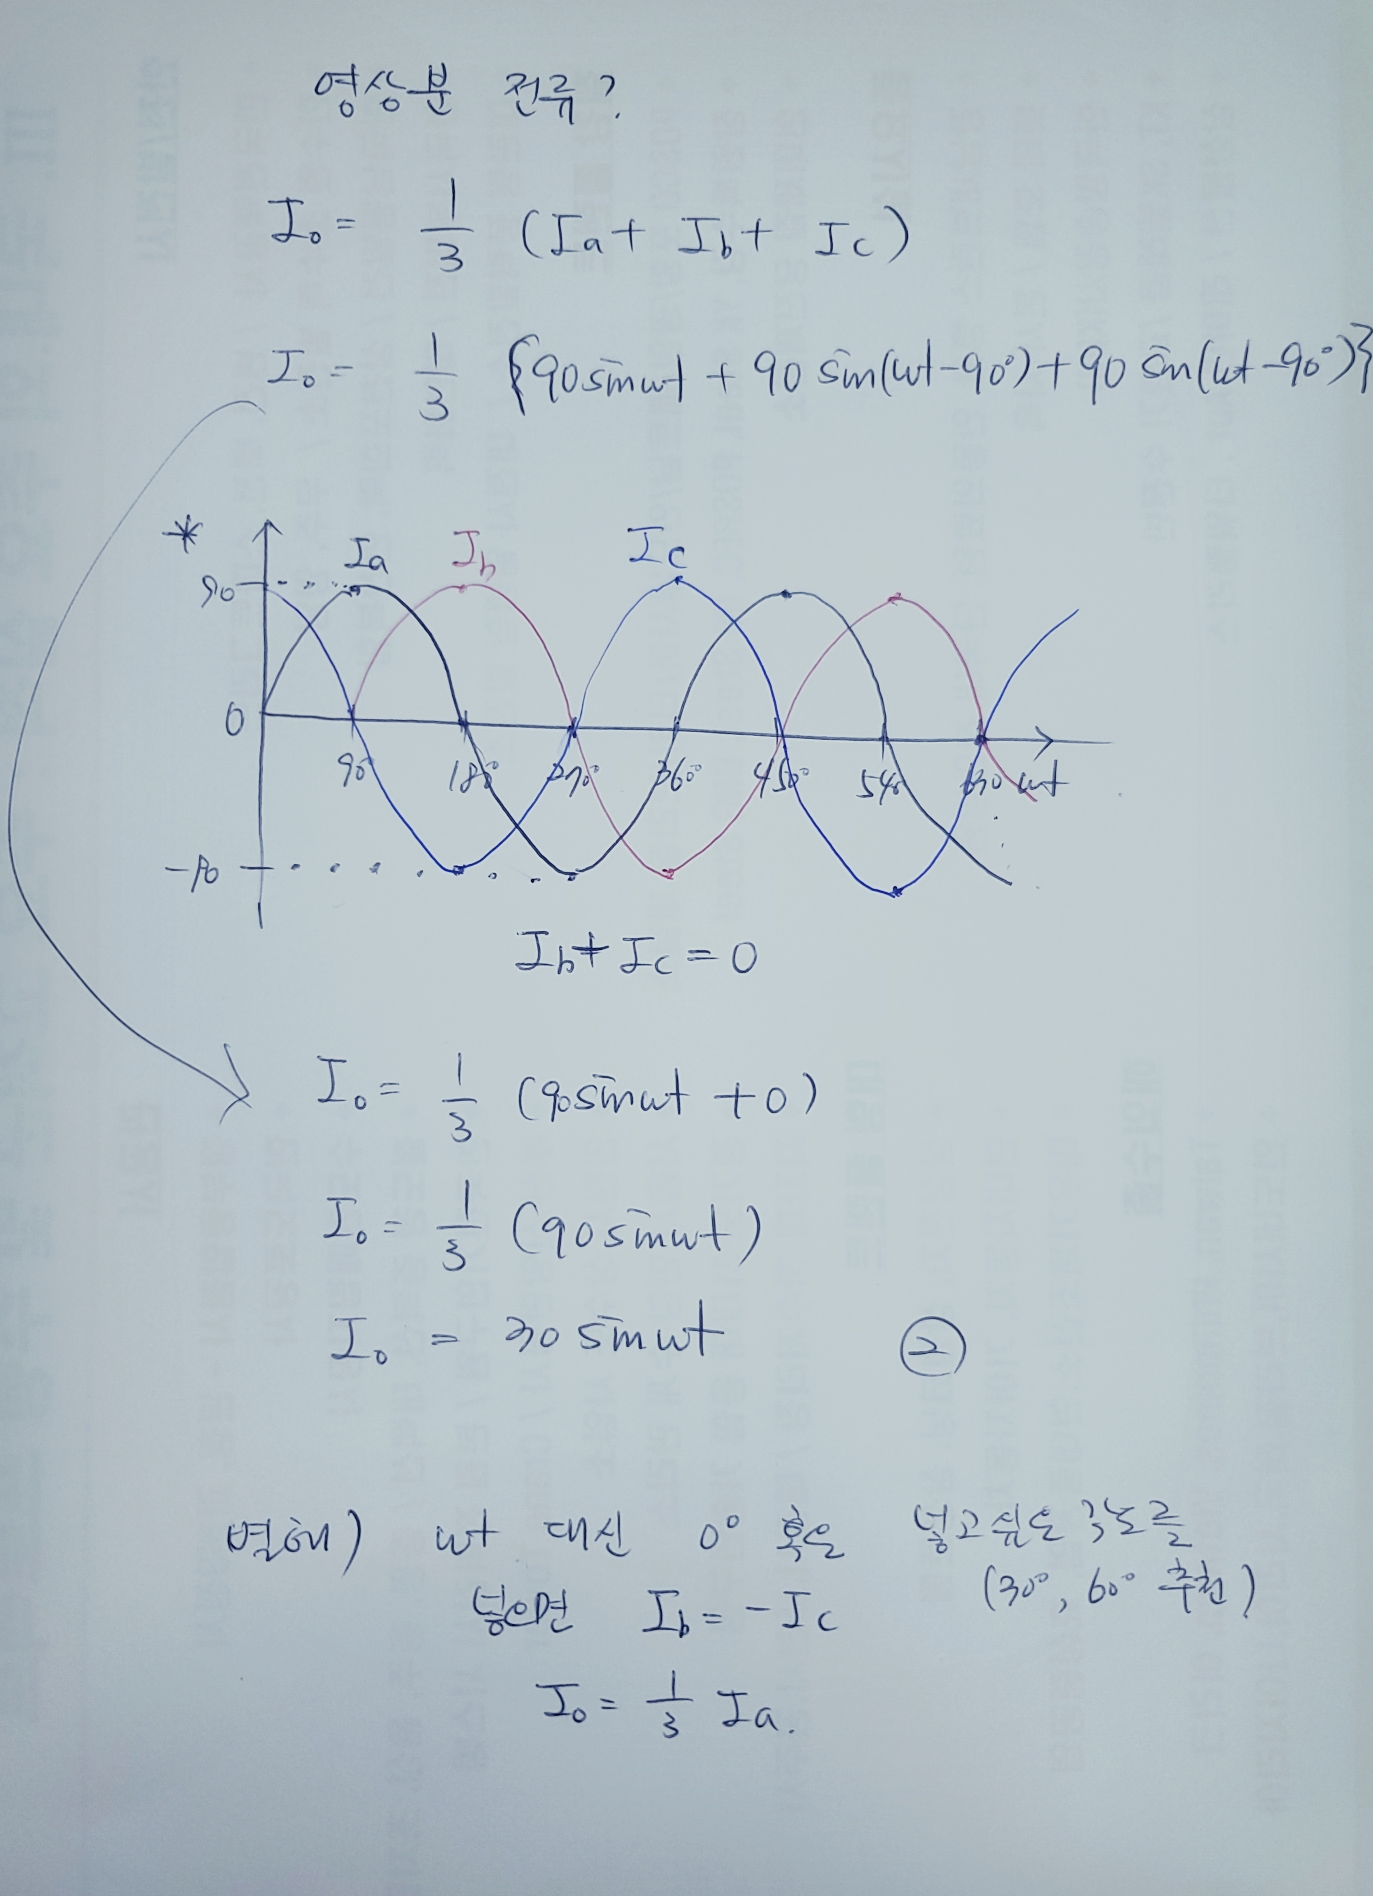 영상분 전류?
I₀ = 1/3 (Ia + Ib + Ic)
I₀ = 1/3 {90sinωt + 90 sin(ωt-90°) + 90 sin(ωt-90°)}
* Ia Ib Ic
90
0
90° 180° 270° 360° 450° 540 630 ωt
-90
Ib + Ic = 0
I₀ = 1/3 (90sinωt + 0)
I₀ = 1/3 (90sinωt)
I₀ = 30 sinωt ②
별해) ωt 대신 0° 혹은 넣고싶은 각도를
(30°, 60° 추천)
넣으면 Ib = -Ic
I₀ = 1/3 Ia.